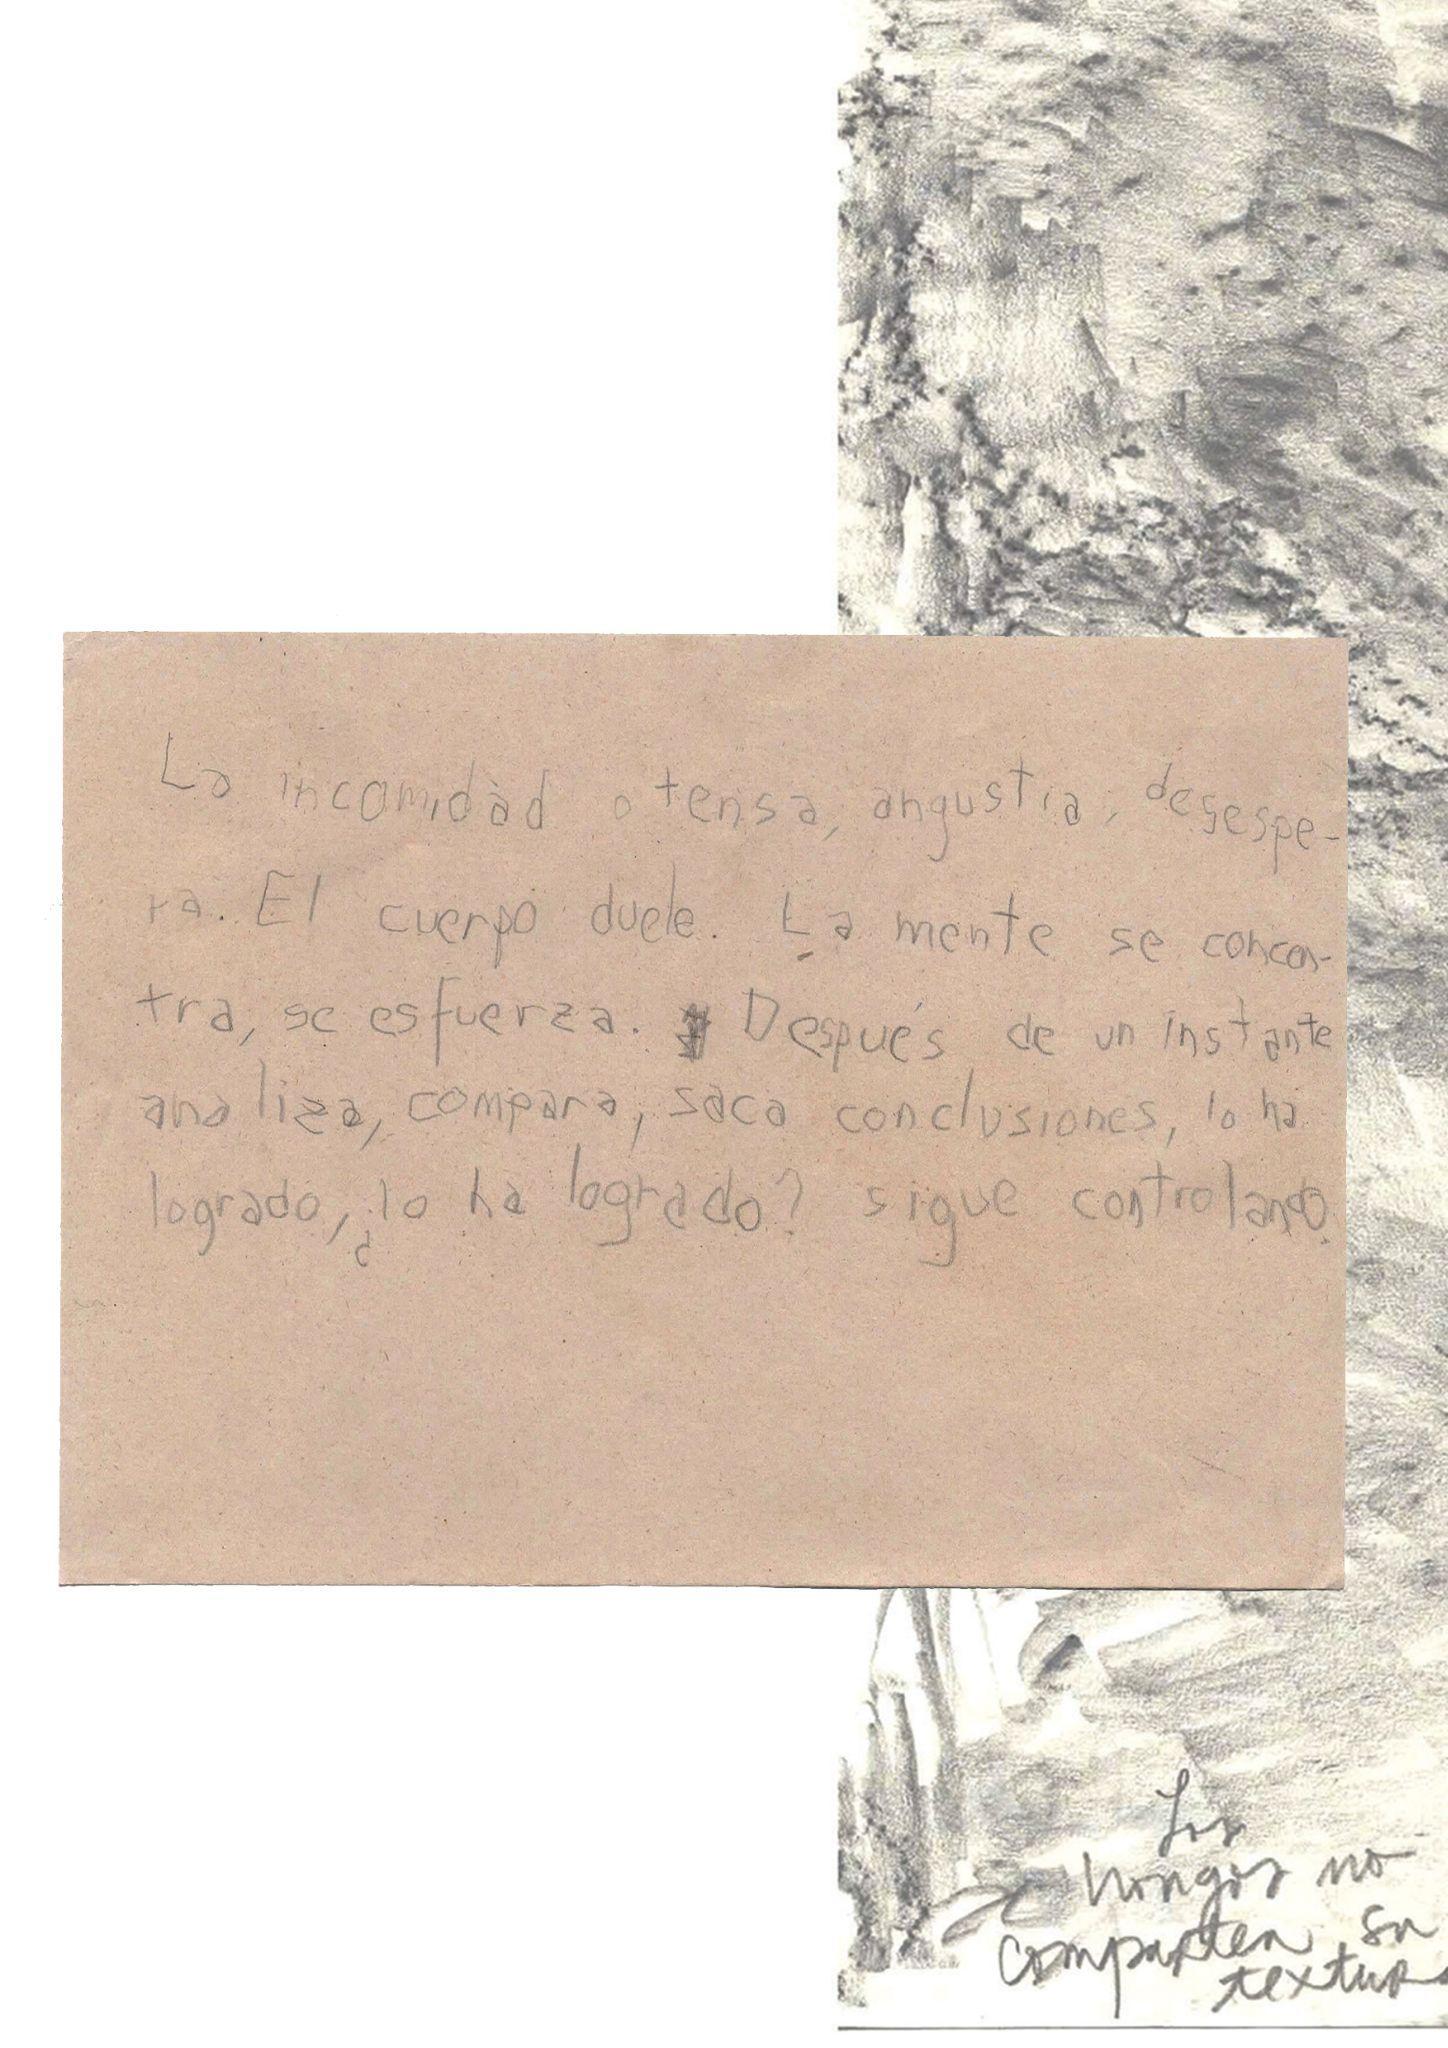 La incomidàd o tensa, angustia, desespe-
ra. El cuerpo duele. La mente se concen-
tra, se esfuerza. Después de un instante
analiza, compara, saca conclusiones, lo ha
logrado, ¿lo ha logrado? sigue controlando.
Los
hongos no
comparten su
textura